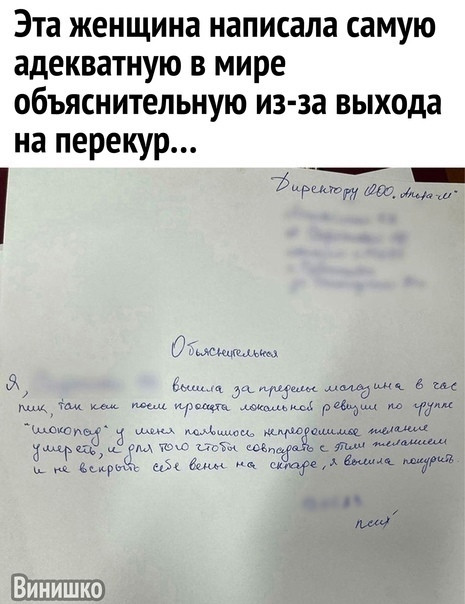 Эта женщина написала самую
адекватную в мире
объяснительную из-за выхода
на перекур...
Директору ООО „Альфа-М"
Объяснительная
Я, вышла за пределы магазина в час
пик, так как после просчета локальной ревизии по группе
"шоколад" у меня появилось непреодолимое желание
умереть, и для того чтобы совладать с этим желанием
и не вскрыть себе вены на складе, я вышла покурить.
Винишко